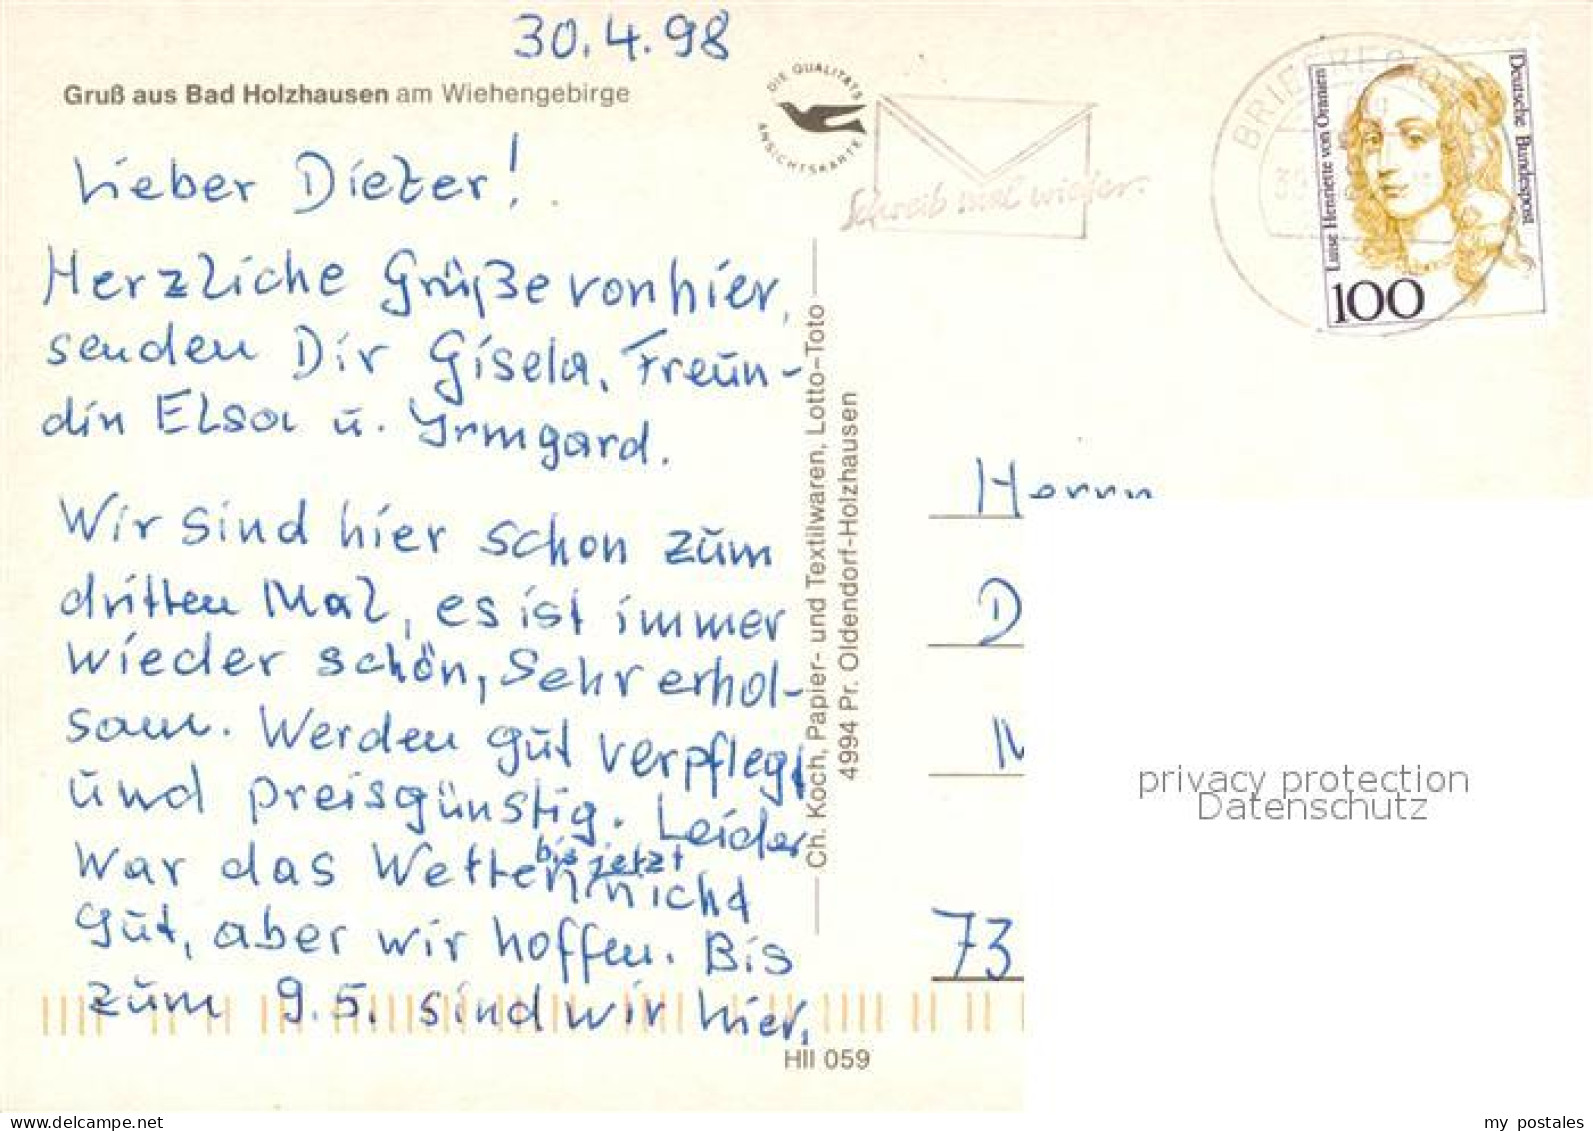 30.4.98
Gruß aus Bad Holzhausen am Wiehengebirge
DIE QUALITÄTS
ANSICHTSKARTE
Schreib mal wieder.
Luise Henriette von Oranien
Deutsche Bundespost
100
Lieber Dieter!
Herzliche Grüße von hier,
senden Dir Gisela, Freun-
din Elsa u. Irmgard.
Wir sind hier schon zum
dritten Mal, es ist immer
wieder schön, sehr erhol-
sam. Werden gut verpflegt
und preisgünstig. Leider
war das Wetter bis jetzt nicht
gut, aber wir hoffen. Bis
zum 9.5. sind wir hier.
Ch. Koch, Papier- und Textilwaren, Lotto-Toto
4994 Pr. Oldendorf-Holzhausen
HII 059
Herrn
D
73
privacy protection
Datenschutz
www.delcampe.net
my_postales